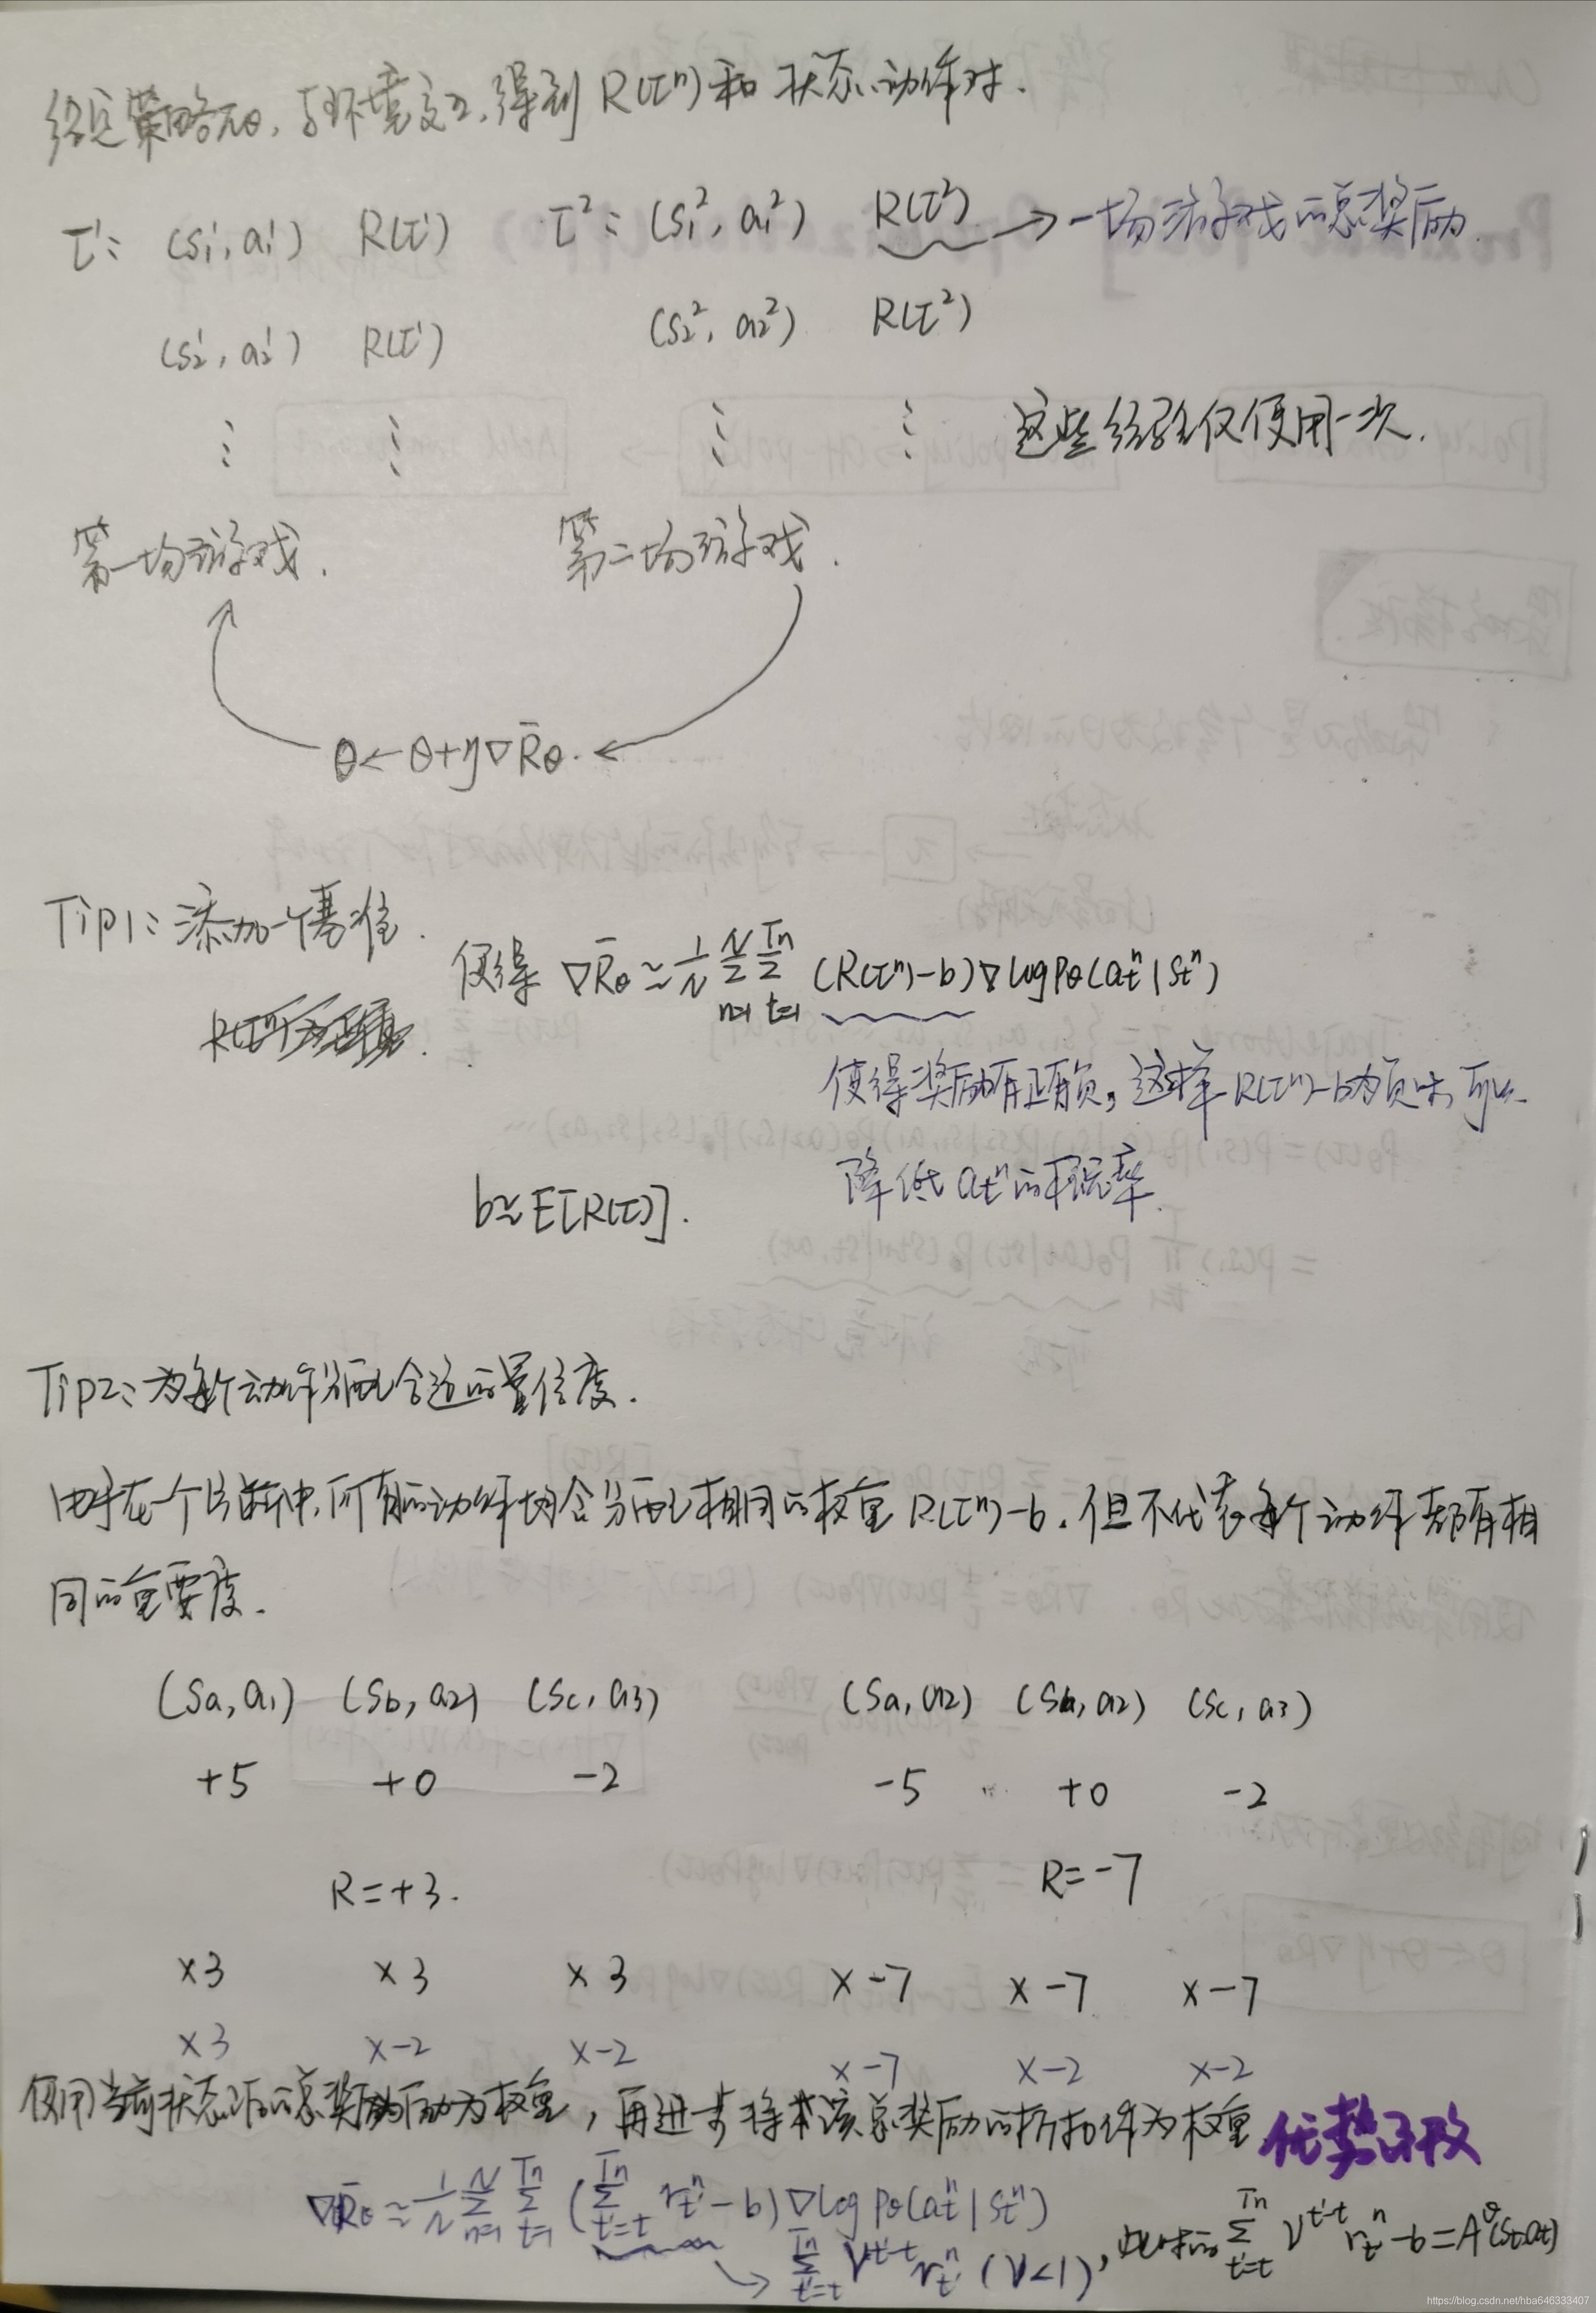 给定策略πθ,与环境交互,得到 R(τⁿ) 和 状态、动作对.
τ¹: (s₁¹, a₁¹) R(τ¹) τ²: (s₁², a₁²) R(τ²) → 一场游戏的总奖励.
(s₂¹, a₂¹) R(τ¹) (s₂², a₂²) R(τ²)
⋮ ⋮ ⋮ ⋮ 这些经验仅使用一次.
第一场游戏. 第二场游戏.
θ ← θ+η∇R̄θ.
Tip1: 添加一个基准.
使得 ∇R̄θ ≈ 1/N Σₙ₌₁ᴺ Σₜ₌₁ᵀⁿ (R(τⁿ)-b)∇logpθ(aₜⁿ|sₜⁿ)
使得奖励有正有负,这样R(τⁿ)-b为负时,可以
降低aₜⁿ的概率.
b≈E[R(τ)].
Tip2: 为每个动作分配合适的置信度.
由于在一个片断中,所有的动作均会分配相同的权重 R(τⁿ)-b. 但不代表每个动作都有相
同的重要度.
(Sa, a₁) (Sb, a₂) (Sc, a₃) (Sa, a₂) (Sb, a₂) (Sc, a₃)
+5 +0 -2 -5 +0 -2
R=+3. R=-7
×3 ×3 ×3 ×-7 ×-7 ×-7
×3 ×-2 ×-2 ×-7 ×-2 ×-2
使用当前状态后的总奖励为权重,再进一步将该总奖励的折扣作为权重 优势函数
∇R̄θ ≈ 1/N Σₙ₌₁ᴺ Σₜ₌₁ᵀⁿ (Σₜ'₌ₜᵀⁿ rₜ'ⁿ-b)∇logpθ(aₜⁿ|sₜⁿ)
→ Σₜ'₌ₜᵀⁿ γᵗ'⁻ᵗ rₜ'ⁿ (γ<1), 此时的 Σₜ'₌ₜᵀⁿ γᵗ'⁻ᵗ rₜ'ⁿ-b=A^θ(st,at)
https://blog.csdn.net/hba646333407